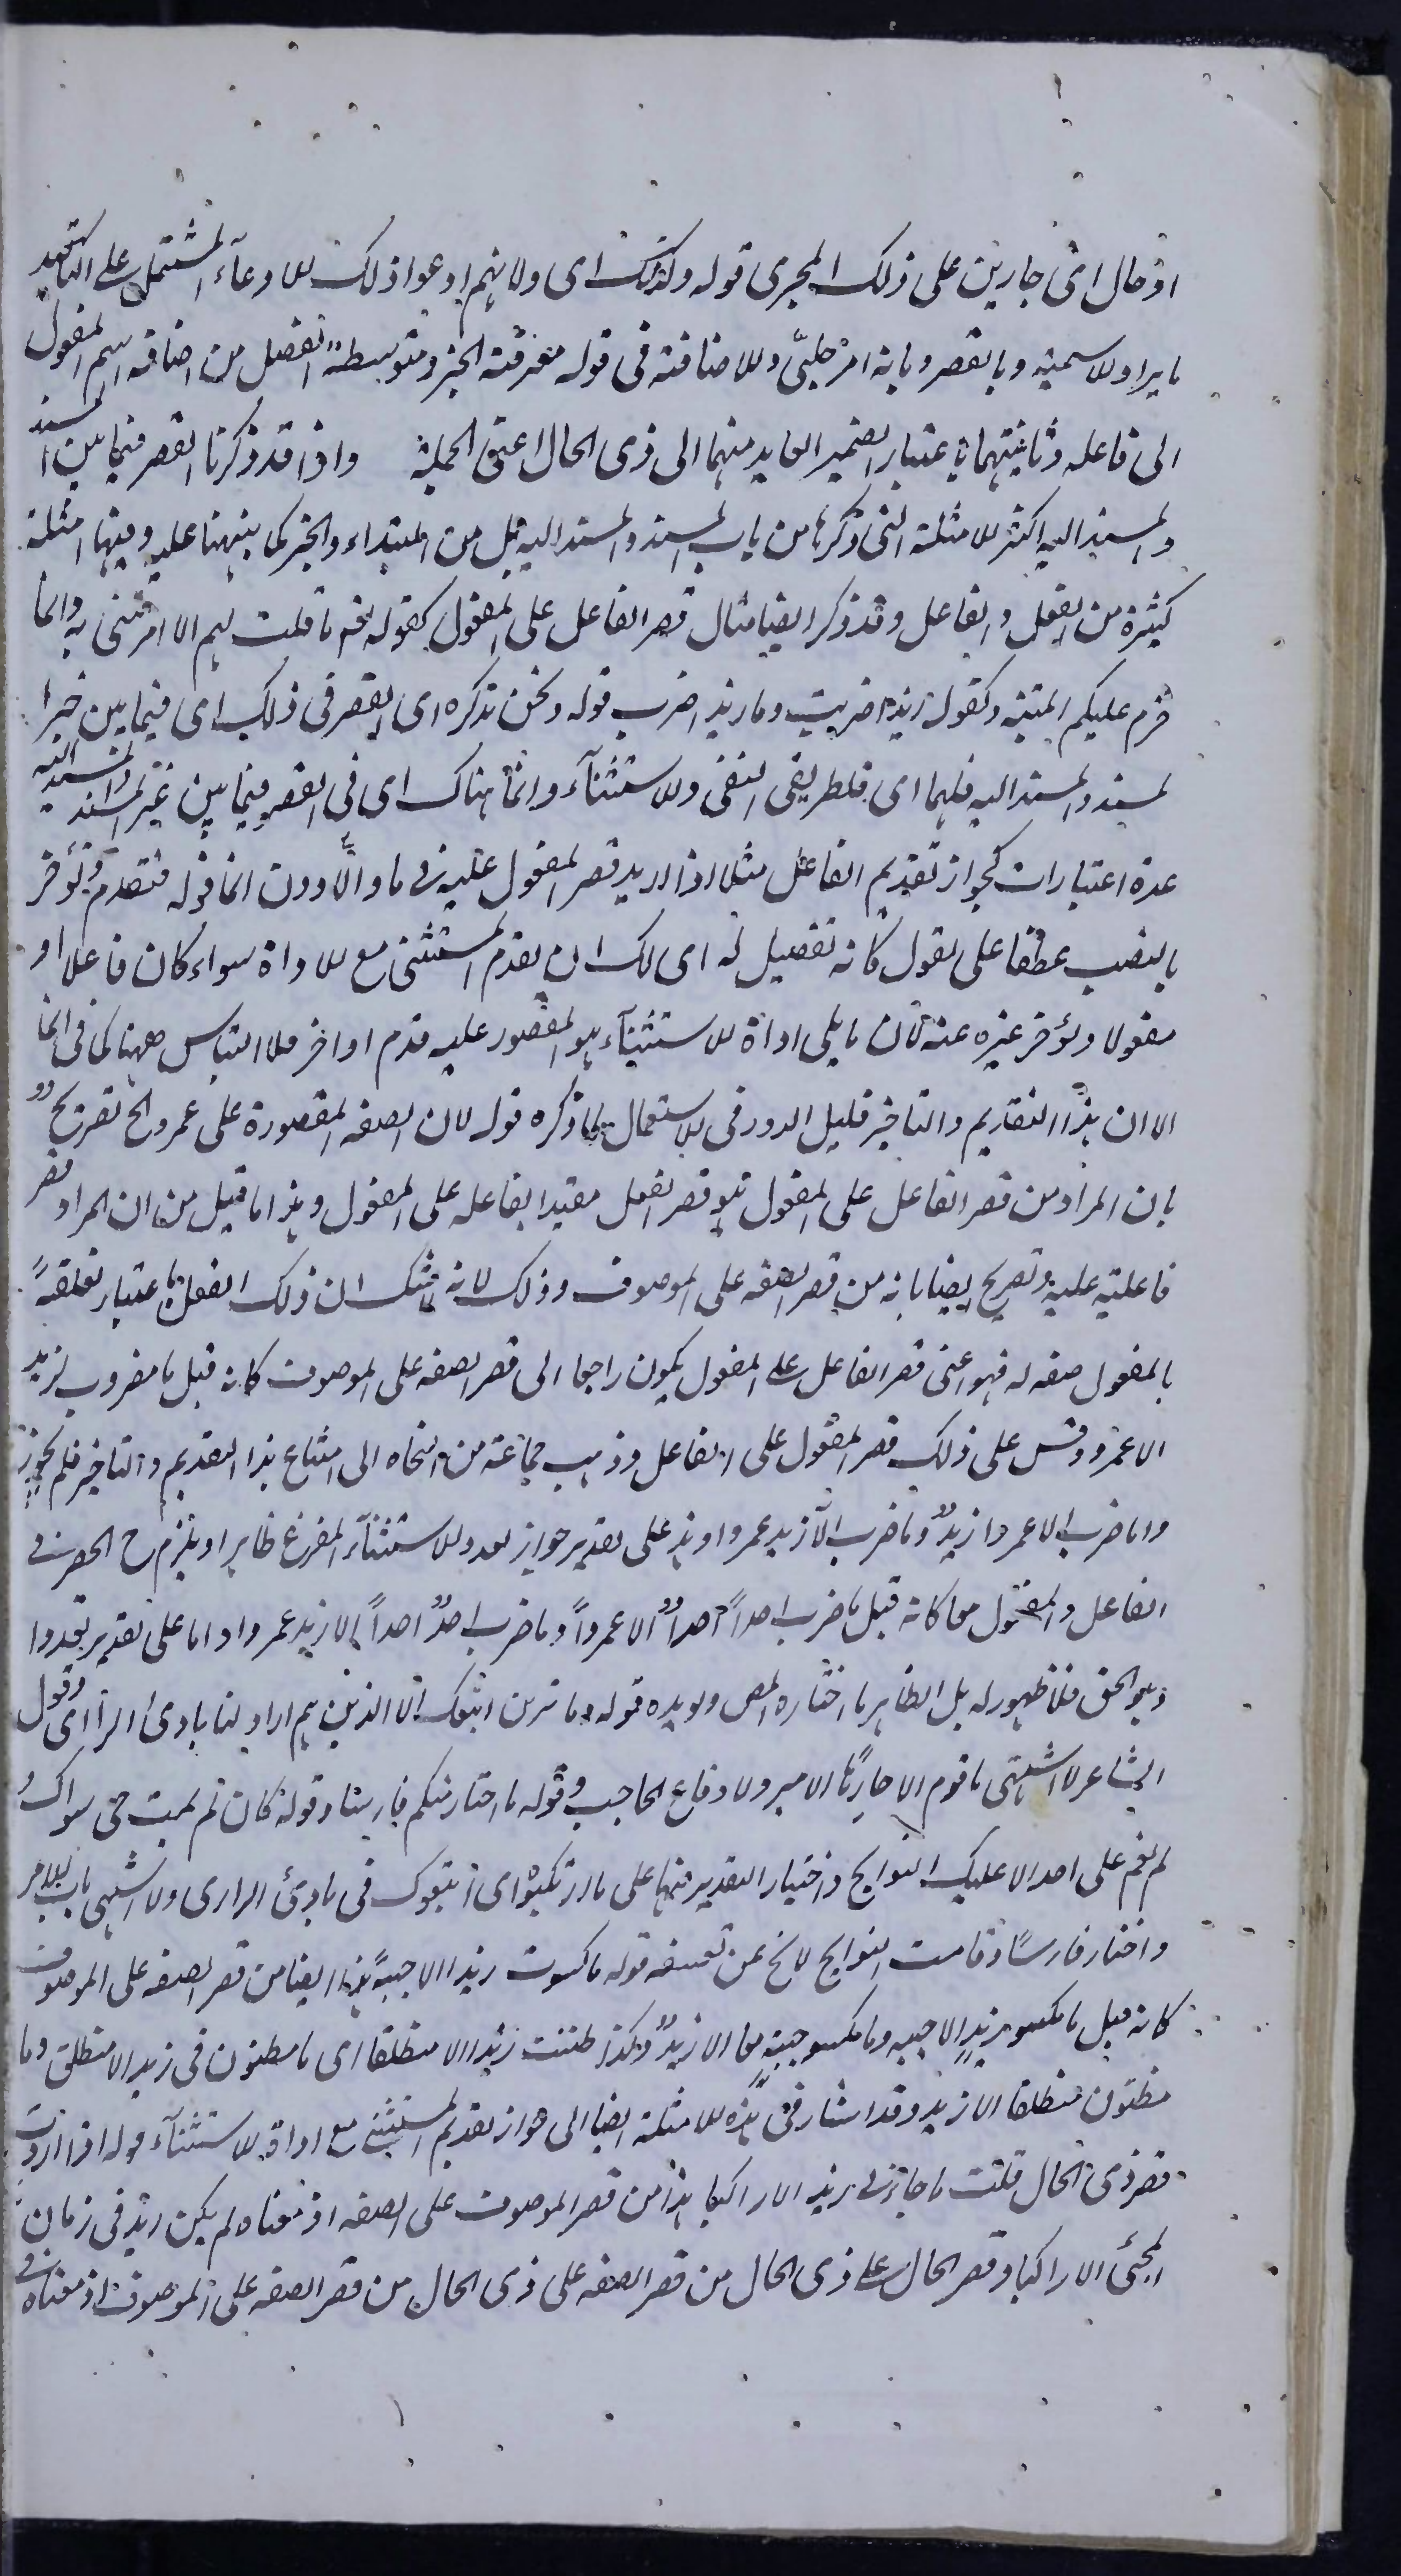 او حال اى جارين على ذلك المجرى قوله ولذلك اى ولانهم ادعوا ذلك الادعاء المشتمل على التاكيد
بايراد الاسمية وبالقصر وبانه امر جلىّ والاضافة فى قوله معرفة الخبر ومتوسطة الفصل من اضافة اسم المفعول
الى فاعله وثانيتهما باعتبار الضمير العايد منهما الى ذى الحال اعنى الجملة واذا قد ذكرنا القصر فيما بين المسند
والمسند اليه اكثر الامثلة التى ذكرها من باب المسند والمسند اليه قبل من المبتداء والخبر كما نبهنا عليه وفيها امثلة
كثيرة من الفعل والفاعل وقد ذكر ايضا مثال قصر الفاعل على المفعول كقوله تعالى ما قلت لهم الا ما امرتنى به وانما
حرم عليكم الميتة وكقوله زيدا ضربت وما زيدا ضرب قوله ونحن نذكره اى القصر فى ذلك اى فيما بين غير
المسند والمسند اليه فلهما اى فلطريقى النفى والاستثنآء وانما هناك اى فى القصر فيما بين غير المسند والمسند اليه
عدة اعتبارات كجواز تقديم الفاعل مثلا اذا اريد قصر المفعول عليه فى ما والّا دون انما قوله فتقدم وتؤخر
بالنصب عطفا على تقول كانه تفصيل له اى لك ان تقدم المستثنى مع الاداة سواء كان فاعلا او
مفعولا وتؤخر غيره عنه لان ما يلى اداة الاستثنآء هو المقصور عليه قدم او اخر فلا التباس ههنا كما فى انما
الا ان هذا التقديم والتاخير قليل الدور فى الاستعمال لما ذكره قوله لان الصفة المقصورة على عمرو الخ تصريح
بان المراد من قصر الفاعل على المفعول هو قصر الفعل مقيدا بفاعله على المفعول وهذا ما قيل من ان المراد قصر
فاعليته عليه وتصريح ايضا بانه من قصر الصفة على الموصوف وذلك لانه لا شك ان ذلك الفعل باعتبار تعلقه
بالمفعول صفة له فهو اعنى قصر الفاعل على المفعول يكون راجعا الى قصر الصفة على الموصوف كانه قيل ما مضروب لزيد
الا عمرو وقس على ذلك قصر المفعول على الفاعل وذهب جماعة من النحاة الى امتناع هذا التقديم والتاخير فلم يجوز
وا ما ضرب الا عمروا زيدٌ وما ضرب الا زيد عمروا وهذا على تقدير جواز تعدد الاستثنآء المفرغ ظاهر او يلزم ح الحصر فى
الفاعل والمفعول معا كانه قيل ما ضرب احداً احدٌ الا عمرواً وما ضرب احدٌ احداً الا زيد عمروا واما على تقدير تعدوا
وهو الحق فلا ظهور له بل الظاهر ما اختاره المص ويؤيده قوله وما نرىك اتبعك الا الذين هم اراذلنا بادى الراى وقول
الشاعر لا اشتهى يا قوم الا كارهًا باب الامير ولا دفاع الحاجب وقوله ما اختار منكم فارسا وقوله كان لم يمت حى سواك و
لم تقم على احد الا عليك النوايح واختيار التقدير فيها على ما ارتكبوه اى اتبعوك فى بادى الراى ولا اشتهى باب الامير
واختار فارسًا وقامت النوايح لا يخ عن تعسف قوله ما كسوت زيدا الا جبةً هذا ايضا من قصر الصفة على الموصوف
كانه قيل ما مكسو زيدٍ الا جبة وما مكسو جبة منا الا زيدٌ وكذا ظننت زيدا الا منطلقا اى ما مظنون فى زيد الا منطلق وما
مظنون منطلقا الا زيد وقد اشار فى هذه الامثلة ايضا الى جواز تقديم المستثنى مع اداة الاستثنآء قوله اذا اردت
قصر ذى الحال قلت ما جاءنى زيد الا راكبا هذا من قصر الموصوف على الصفة اذ معناه لم يكن زيد فى زمان
المجئ الا راكبا وقصر الحال على ذى الحال من قصر الصفة على ذى الحال من قصر الصفة على الموصوف اذ معناه